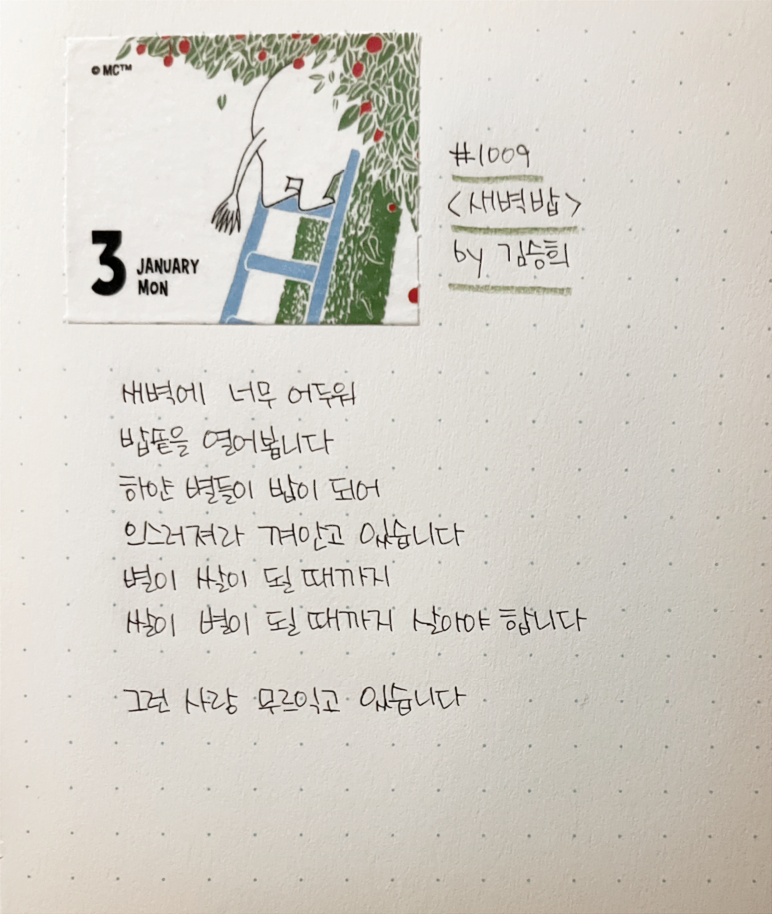 © MC™
3 JANUARY
MON
#1009
<새벽밥>
by 김승희
새벽에 너무 어두워
밥솥을 열어봅니다
하얀 별들이 밥이 되어
으스러져라 껴안고 있습니다
별이 쌀이 될 때까지
쌀이 별이 될 때까지 살아야 합니다
그런 사랑 무르익고 있습니다